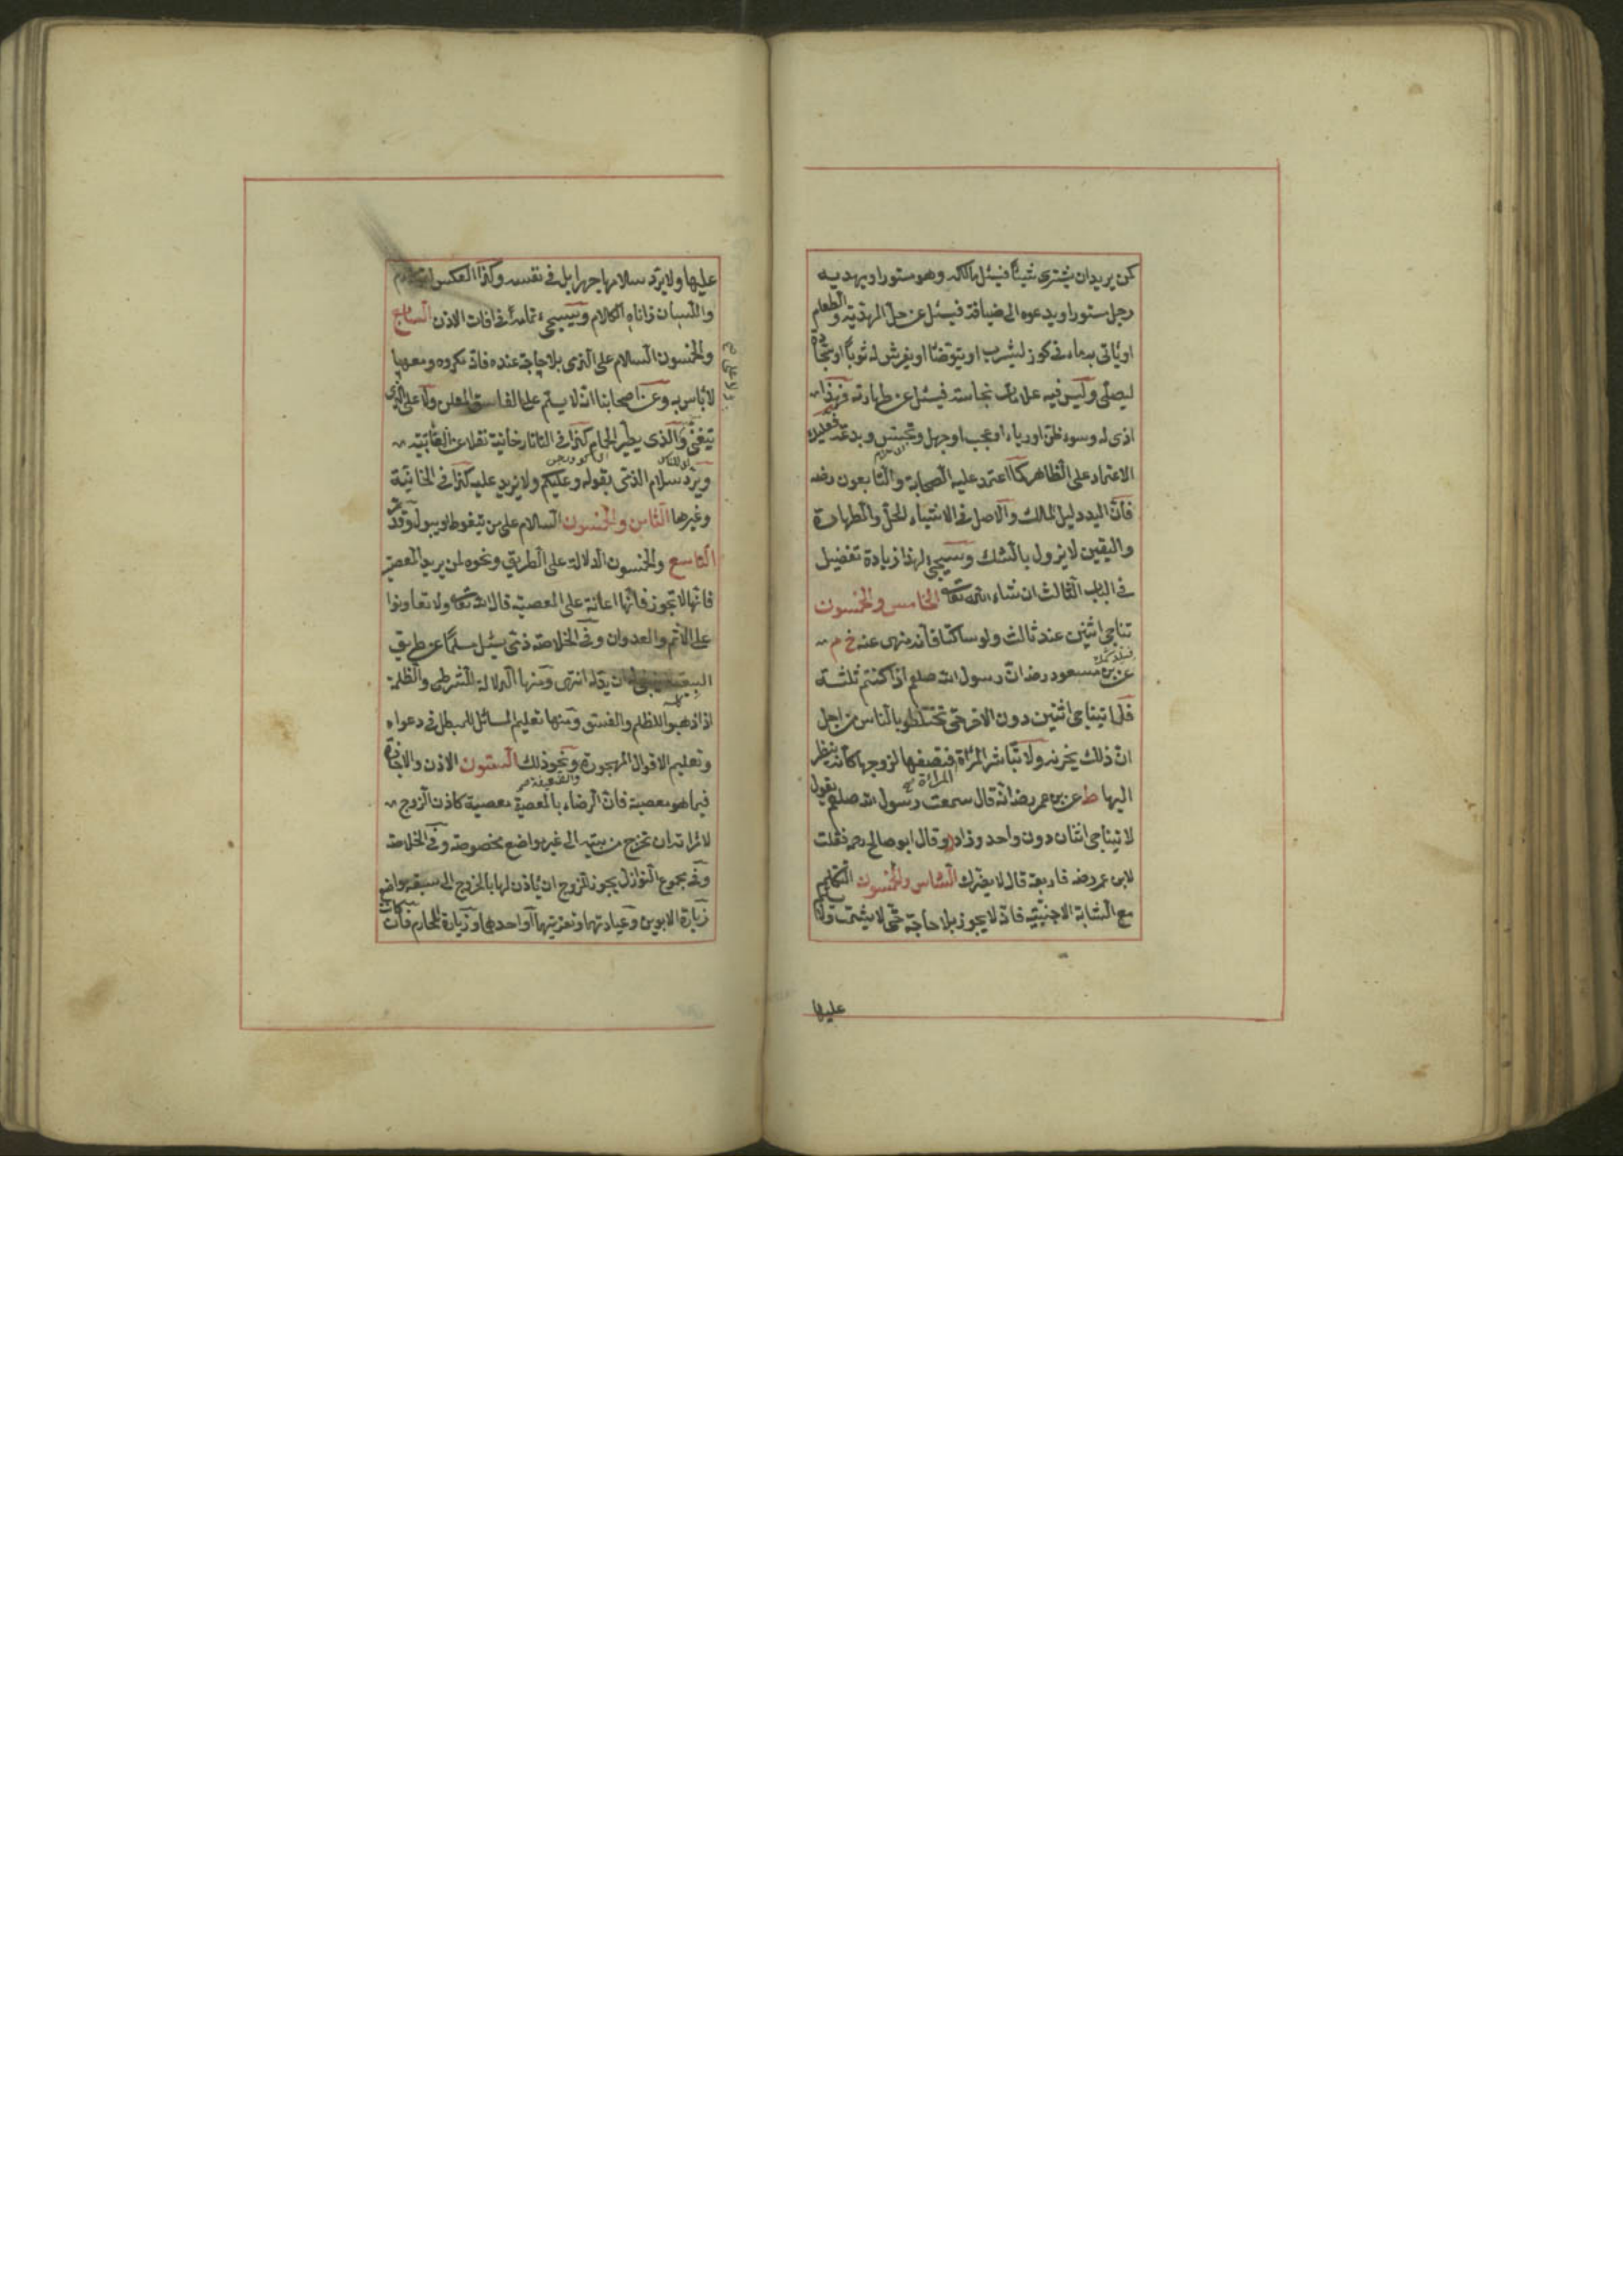 كمن يريد ان يشترى شيئا فيسئل مالكه وهو مستور او يهديه
رجل مستور او يدعوه الى ضيافة فيسئل عن حل الهدية والطعام
او يأتى به ماء فى كوز ليشرب او يتوضأ او يفرش له ثوبا او سجادة
ليصلى وليس فيه علامات نجاسته فيسئل عن طهارته فهذا
اذى له وسوء ظن او رياء او عجب او جهل وتجسس وبدعة فعليك
الاعتماد على الظاهر كما اعتمد عليه الصحابة والتابعون رضه
فان اليد دليل الملك والاصل فى الاشياء الحل والطهارة
واليقين لا يزول بالشك وسيجئ لهذا زيادة تفصيل
فى الباب الثالث ان شاء الله تعالى الخامس والخمسون
تناجى اثنين عند ثالث ولو ساكتا فانه منهى عنه خ م
عن بن مسعود رضه ان رسول الله صلعم اذا كنتم ثلثة
فلا يتناجى اثنين دون الاخر حتى تختلطوا بالناس من اجل
ان ذلك يحزنه ولا تباشر المرأة فتصفها لزوجها كأنه ينظر
اليها ط عن بن عمر رضه انه قال سمعت رسول الله صلعم يقول
لا يتناجى اثنان دون واحد وزاد د وقال ابو صالح رحمه فقلت
لابن عمر رضه فاربعة قال لا يضرك السادس والخمسون التكلم
مع الشابة الاجنبية فانه لا يجوز بلا حاجة حتى لا يشمت ولا يسلم
عليها
عليها ولا يرد سلامها جهرا بل فى نفسه وكذا العكس
واللسان زناه الكلام وسيجئ تمامه فى افات الاذن السابع
والخمسون السلام على الذمى بلا حاجة عنده فانه مكروه ومعها
لا بأس به وعن اصحابنا انه لا يسلم على الفاسق المعلن ولا على الذى
يتغنى والذى يطير الحمام كذا فى التاتارخانية نقلا عن العتابية
ويرد سلام الذمى بقوله وعليكم ولا يزيد عليه كذا فى الخانية
وغيرها الثامن والخمسون السلام على من يتغوط او يبول وقد مر
التاسع والخمسون الدلالة على الطريق ونحوه لمن يريد المعصية
فانها لا تجوز فانها اعانة على المعصية قال الله تعالى ولا تعاونوا
على الاثم والعدوان وفى الخلاصة ذمى يسئل مسلما عن طريق
البيعة لا ينبغى له ان يدله انتهى ومنها الدلالة للشرطى والظلمة
اذا ذهبوا للظلم والفسق ومنها تعليم المسائل للمبطل فى دعواه
وتعليم الاقوال المهجورة والضعيفة ونحو ذلك الستون الاذن والاجازة
فيما هو معصية فان الرضاء بالمعصية معصية كاذن الزوج
لامرأته ان تخرج من بيته الى غير مواضع مخصوصة وفى الخلاصة
وفى مجموع النوازل يجوز للزوج ان يأذن لها بالخروج الى سبعة مواضع
زيارة الابوين وعيادتهما وتعزيتهما او احدهما وزيارة المحارم فان